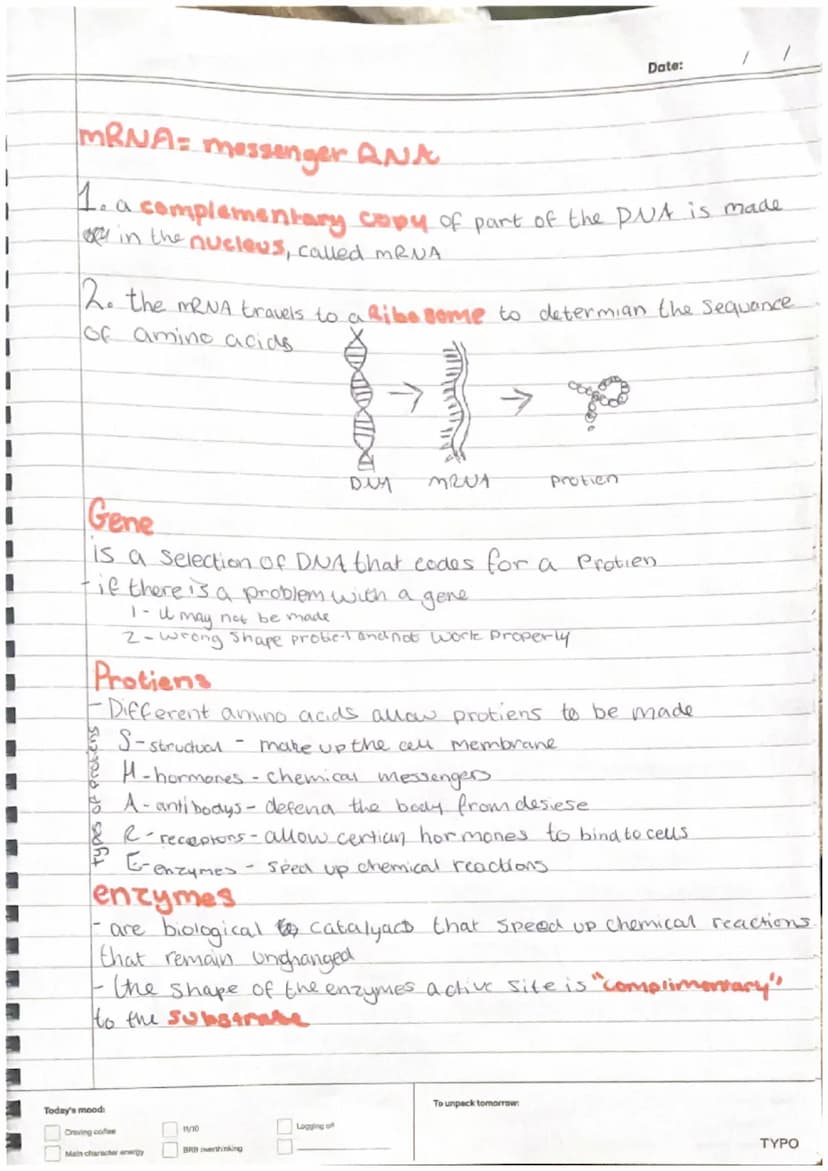 Date: / /
mRNA = messenger RNA
1. a complementary copy of part of the DNA is made
in the nucleus, called mRNA
2. the mRNA travels to a Ribosome to determian the sequance
of amino acids
DNA mRNA Protien
Gene
is a selection of DNA that codes for a Protien
- if there is a problem with a gene
1 - it may not be made
2 - wrong shape and not work properly
Protiens
- Different amino acids allow protiens to be made
types of protiens
S - structual - make up the cell membrane
H - hormones - chemical messengers
A - antibodys - defend the body from desiese
R - receptors - allow certian hormones to bind to cells
E - enzymes - speed up chemical reactions
enzymes
- are biological that speed up chemical reactions
that remain unchanged
- the shape of the enzymes active site is "complimentary"
to the substrate
Today's mood:
Craving coffee
11/10
Logging off
Main character energy
BRB overthinking
To unpack tomorrow:
TYPO